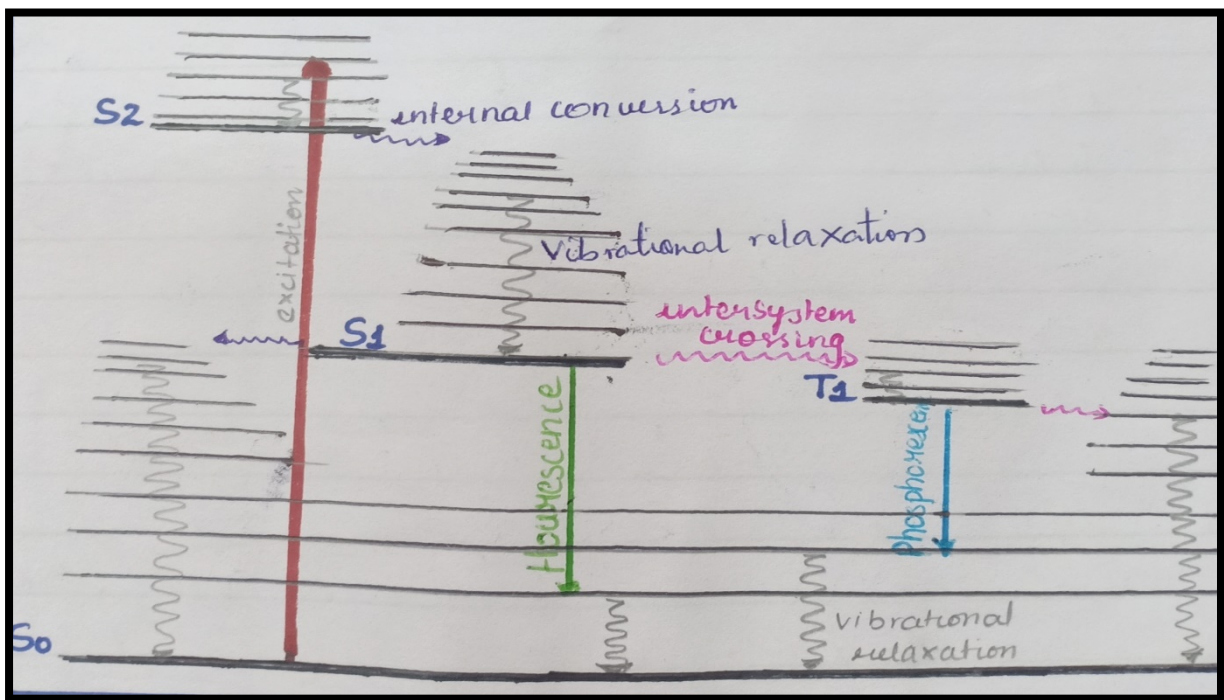 S2
internal conversion
excitation
Vibrational relaxation
intersystem
crossing
S1
T1
Flourescence
Phosphorexen
So
vibrational
relaxation